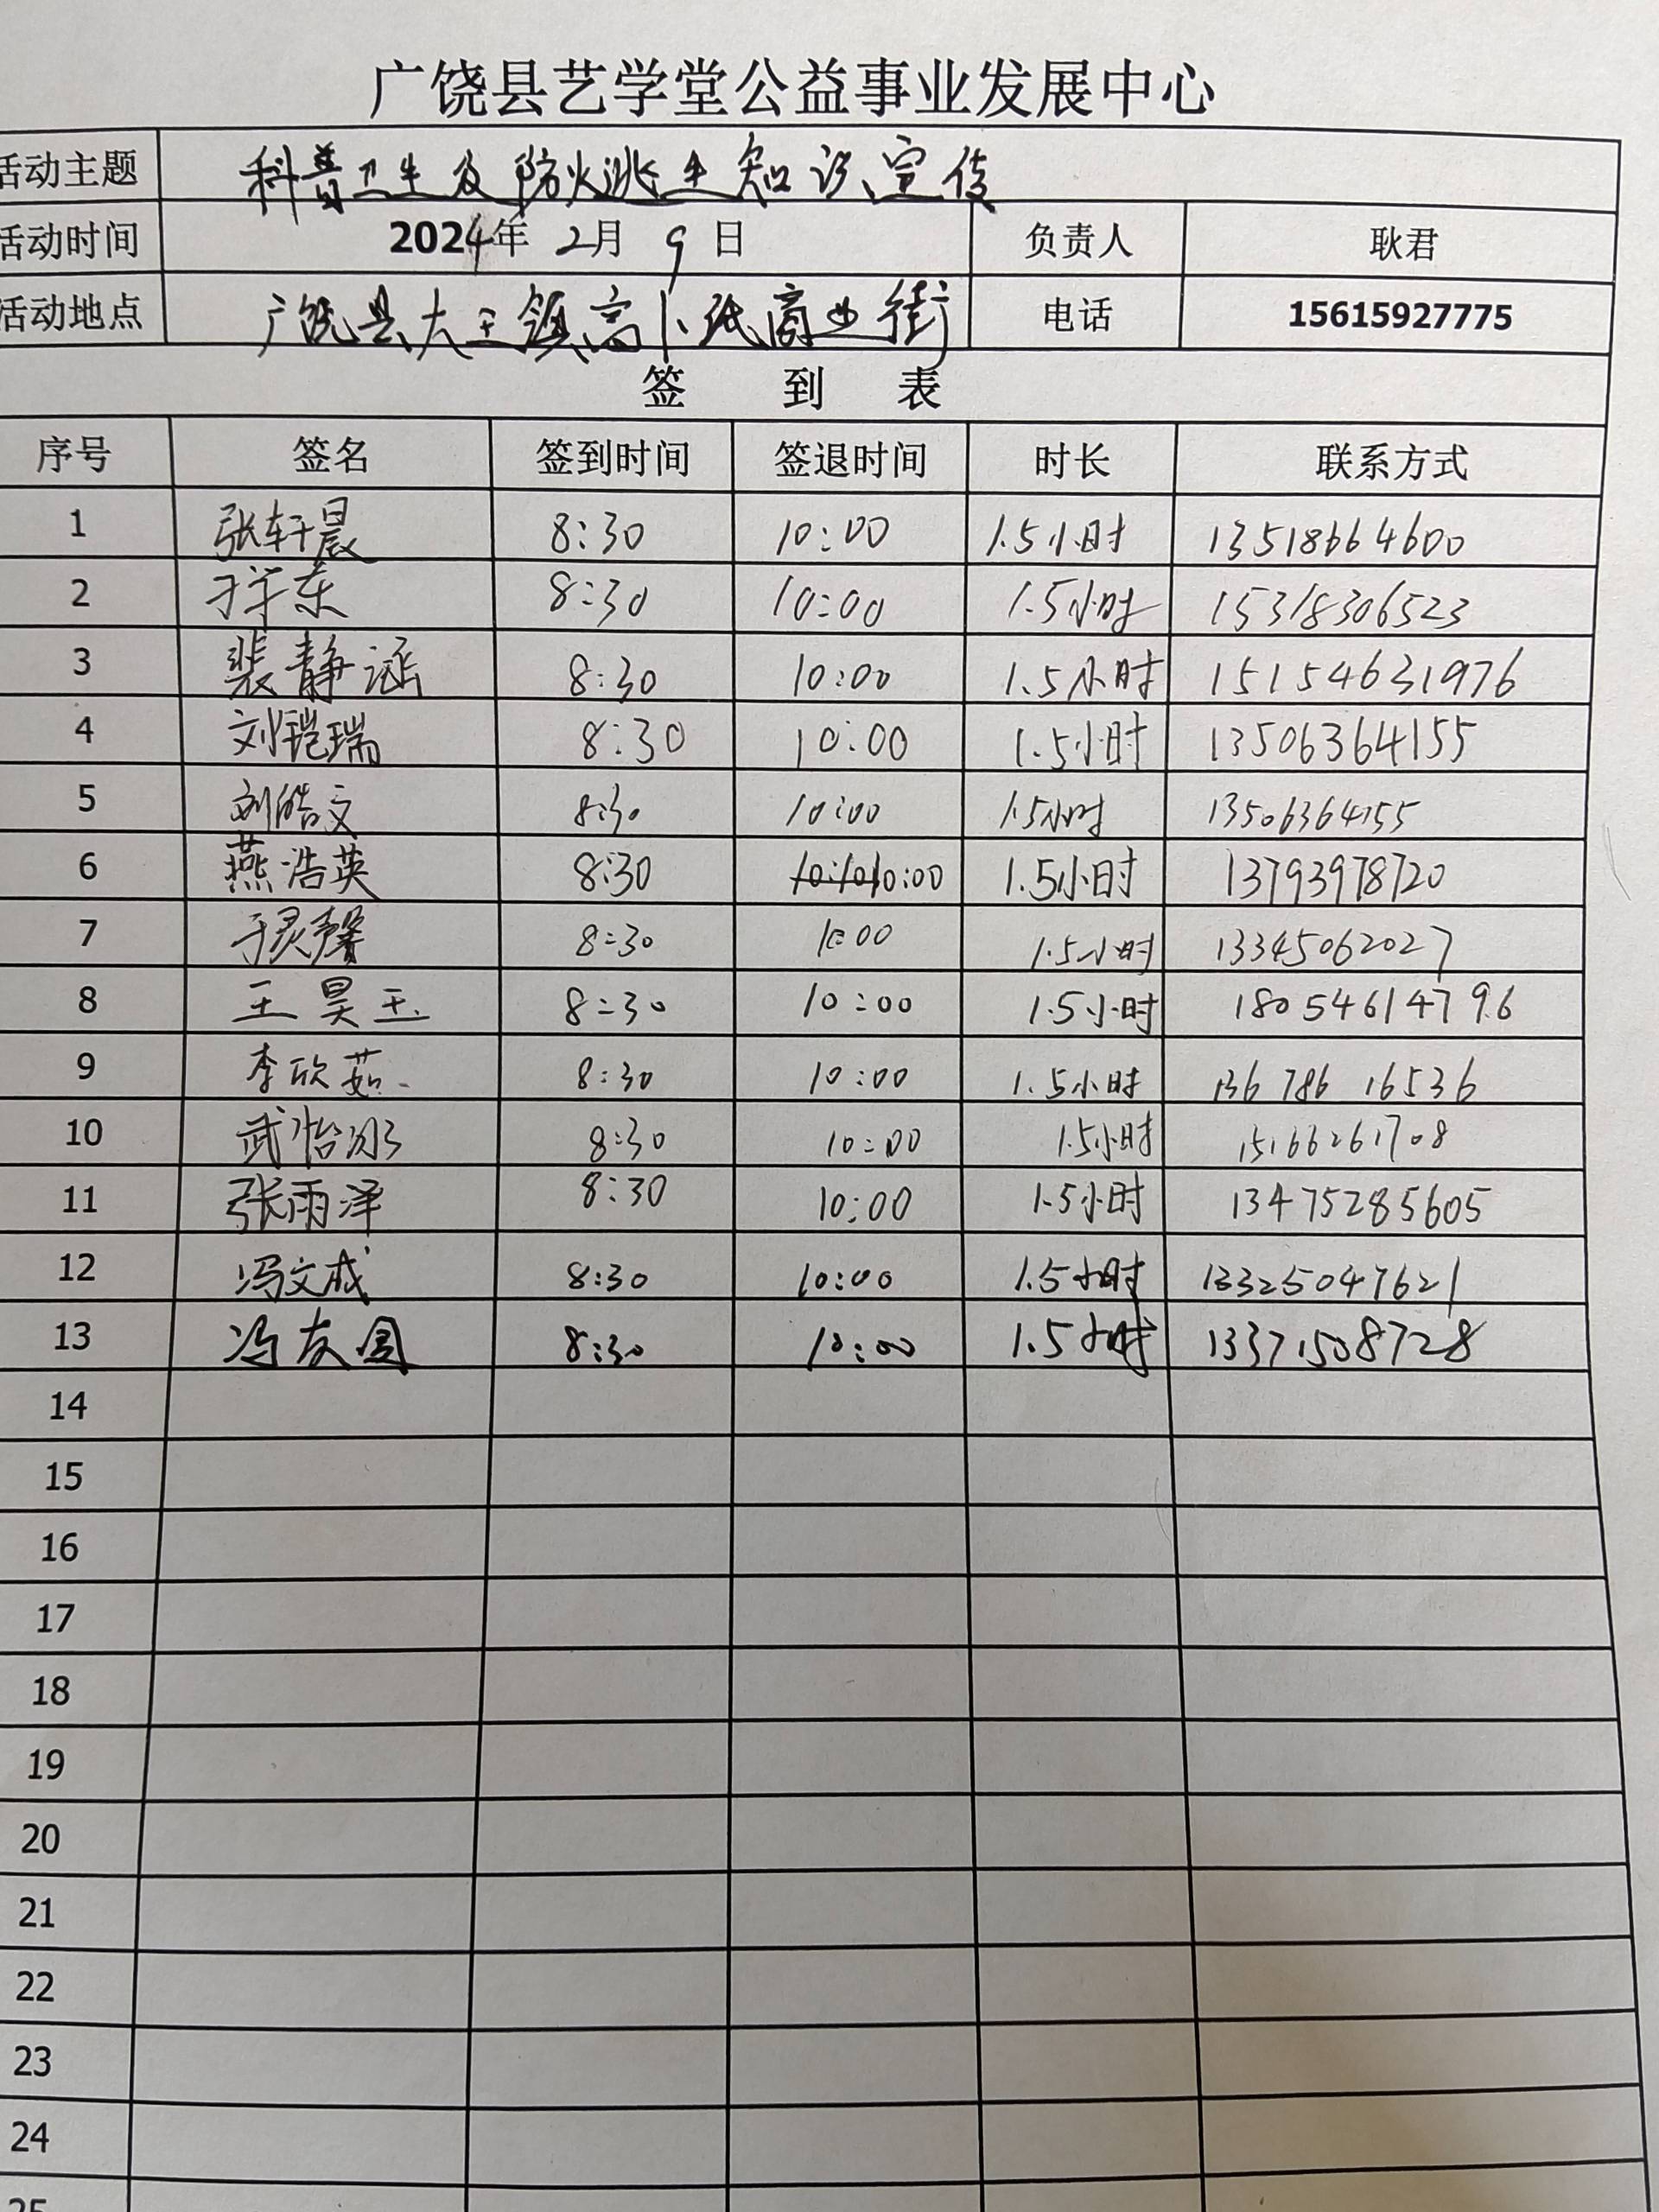 广饶县艺学堂公益事业发展中心
活动主题 科普卫生及防火逃生知识宣传
活动时间 2024年 2月 9日 负责人 耿君
活动地点 广饶县大王镇高小纸商业街 电话 15615927775
签 到 表
序号 签名 签到时间 签退时间 时长 联系方式
1 张轩晨 8:30 10:00 1.5小时 13518664600
2 8:30 10:00 1.5小时 15318306523
3 裴静涵 8:30 10:00 1.5小时 15154631976
4 刘铠瑞 8:30 10:00 1.5小时 13506364155
5 刘皓文 8:30 10:00 1.5小时 13506364155
6 燕浩英 8:30 10:00 1.5小时 13793978720
7 于灵馨 8:30 10:00 1.5小时 13345062027
8 王昊玉 8:30 10:00 1.5小时 18054614796
9 李欣茹 8:30 10:00 1.5小时 136 786 16536
10 武怡冰 8:30 10:00 1.5小时 15166261708
11 张雨泽 8:30 10:00 1.5小时 13475285605
12 冯文成 8:30 10:00 1.5小时 13325047621
13 冯友圆 8:30 10:00 1.5小时 13371508728
14
15
16
17
18
19
20
21
22
23
24
25